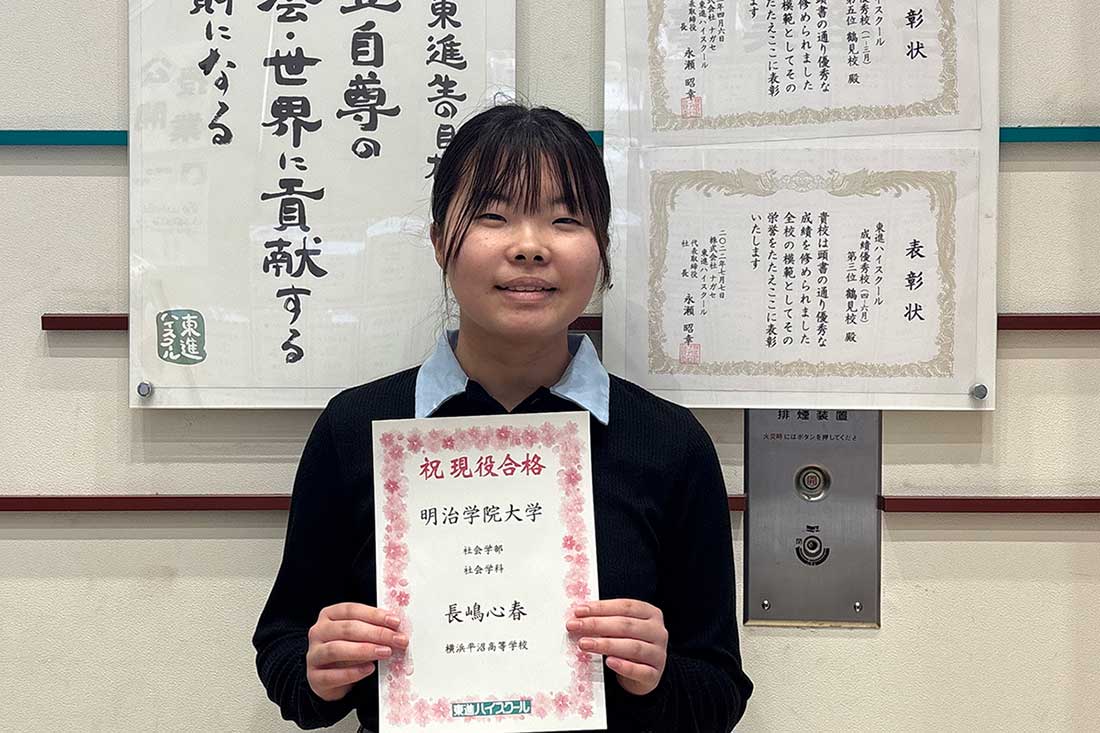 東進生の目
立自尊の
会・世界に貢献する
財になる
東進
ハイスクール
表彰状
ハイスクール
優秀校(一-三月)
第五位 鶴見校 殿
頭書の通り優秀な
修められました
模範としてその
たたえここに表彰
ます
年四月六日
株式会社ナガセ
東進ハイスクール
代表取締役
社長 永瀬昭幸
表彰状
東進ハイスクール
成績優秀校(四-六月)
第三位 鶴見校 殿
貴校は頭書の通り優秀な
成績を修められました
全校の模範としてその
栄誉をたたえここに表彰
いたします
二〇二二年七月七日
株式会社ナガセ
東進ハイスクール
代表取締役
社長 永瀬昭幸
排煙装置
火災時にはボタンを押してください
開
閉
祝 現役合格
明治学院大学
社会学部
社会学科
長嶋心春
横浜平沼高等学校
東進ハイスクール